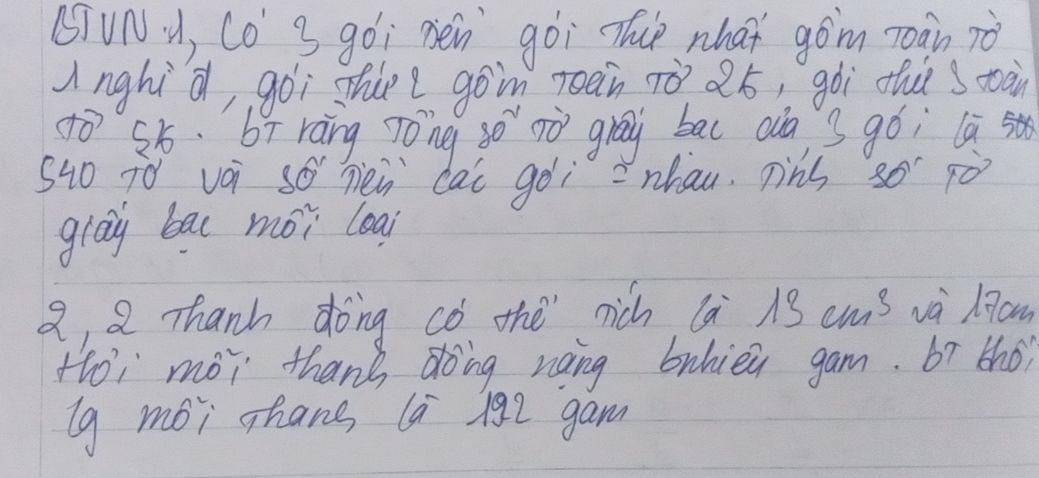 BTVN 1, Có 3 gói tiền gói thứ nhất gồm toàn tờ
1 nghì đ, gói thứ 2 gồm toàn tờ 2k, gói thứ 3 toàn
tờ 5k. bT rằng Tổng số tờ giấy bạc của 3 gói là 500
540 tờ và số tiền các gói = nhau. Tính số tờ
giấy bạc mỗi loại
2, 2 Thanh đồng có thể tích là 13 cm³ và 17cm
Hỏi mỗi thanh đồng nặng bnhiêu gam. bT khối
lg mỗi thanh là 192 gam